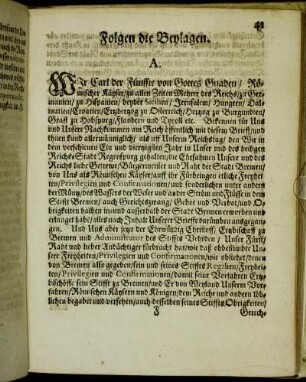 41
Folgen die Beylagen.
A.
Wir Carl der Fünffte von Gottes Gnaden / Rö-
mischer Käyser / zu allen Zeiten Mehrer des Reichs / zu Ger-
manien / zu Hispanien / beyder Sicilien / Jerusalem / Hungern / Dal-
matien / Croatien / Ertzhertzog zu Osterreich / Hertzog zu Burgundien /
Graff zu Habspurg / Flandern und Tyroll etc. Bekennen für Uns
und Unsere Nachkommen am Reich öffentlich mit diesem Brieff / und
thun kund allermänniglich / als auff Unserm Reichstag / den Wir in
dem verschienen Ein und viertzigsten Jahr in Unser und des heiligen
Reichs Stadt Regenspurg gehalten / die Ehrsamen Unsere und des
Reichs liebe Getreue / Bürgermeister und Raht der Stadt Bremen /
von Uns als Römischen Käyser / auff ihr Fürbringen etliche Freyhei-
ten / Privilegien und Confirmationen / und sonderlichen unter andern
der Müntz / des Wassers der Weser und ander Ström und Flüsse in dem
Stifft Bremen / auch Gerichtszwang / Gebot und Verbot / und Ob-
rigkeiten halben in und ausserhalb der Stadt Bremen erworben und
erlanget habe / alles nach Inhalt Unserer Brieffe darumben außgegan-
gen. Und Uns aber jetzo der Ehrwürdig Christoff / Ertzbischoff zu
Bremen und Administrator des Stifftes Vehrden / Unser Fürst /
Raht und lieber Andächtiger fürbracht hat / wie daß obbestimte Un-
sere Freyheiten / Privilegien und Confirmationen / wie obstehet / denen
von Bremen also gegeben / sein und seines Stifftes Regalien / Freyhei-
ten / Privilegien und Confirmationen / damit seine Vorfahren Ertz-
bischöffe sein Stifft zu Bremen / und Er von Weyland Unseren Vor-
fahren / Römischen Käysern und Königen / dem Reiche und andern löb-
lichen begabet und versehen / auch derselben seines Stiffts Obrigkeiten /
F
Gerech-